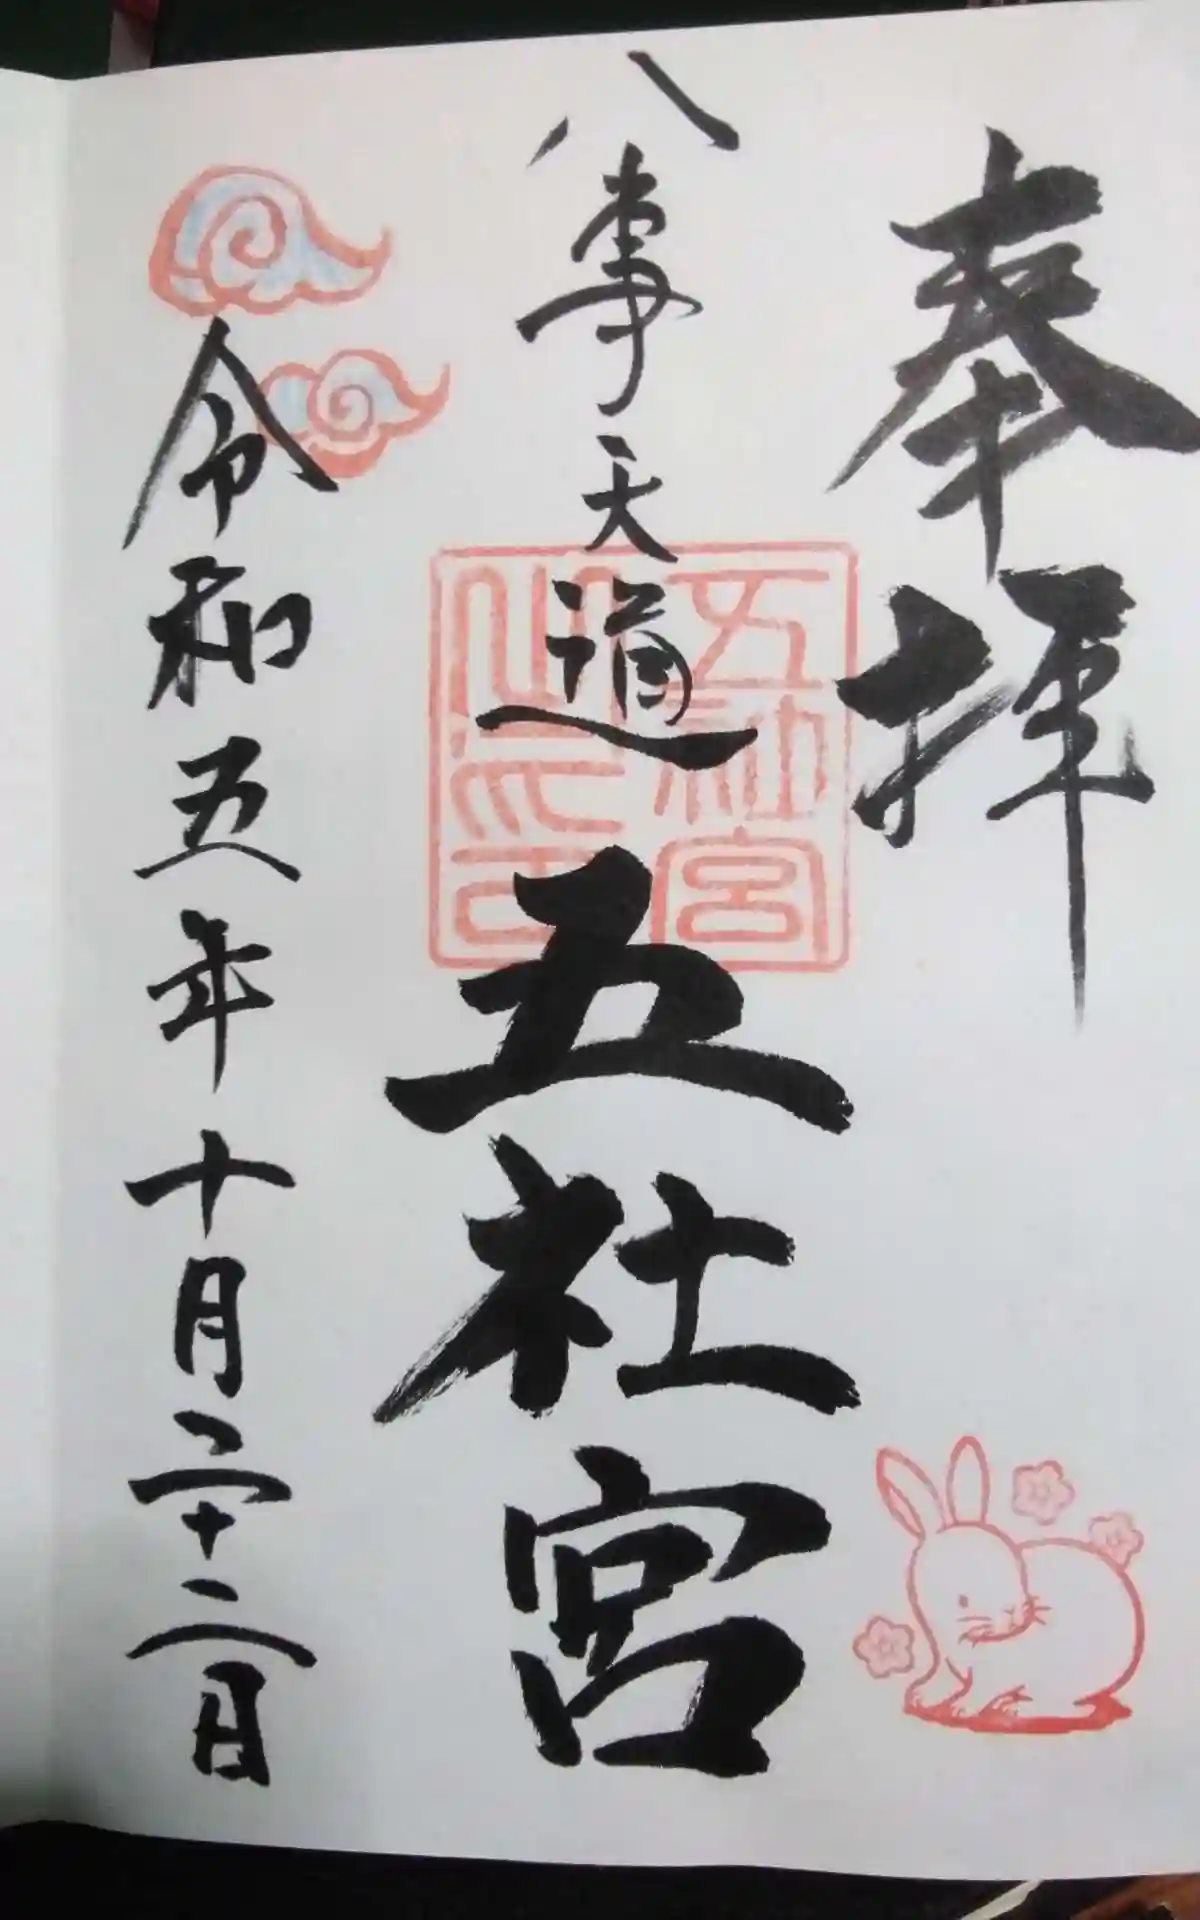 奉拝
八事天道
五社宮
五社宮之印
令和五年十月二十二日